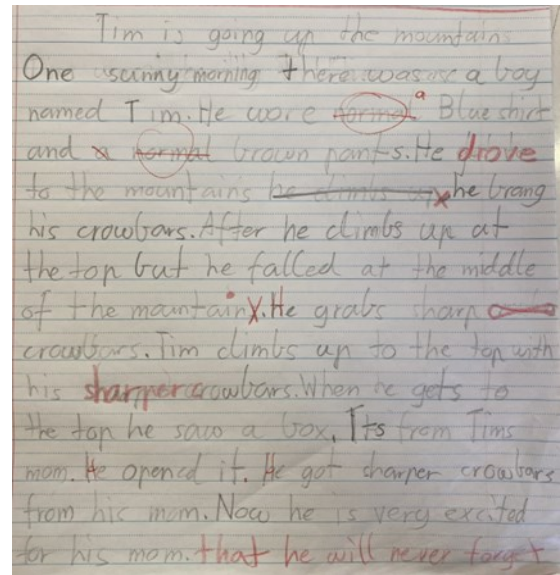 Tim is going up the mountains
One sunny morning there was a boy
named Tim. He wore normal a Blue shirt
and a normal brown pants. He drove
to the mountains he climbs up he brang
his crowbars. After he climbs up at
the top but he falled at the middle
of the mountain. He grabs sharp
crowbars. Tim climbs up to the top with
his sharper crowbars. When he gets to
the top he saw a box. Its from Tims
mom. He opened it. He got sharper crowbars
from his mom. Now he is very excited
for his mom. that he will never forget